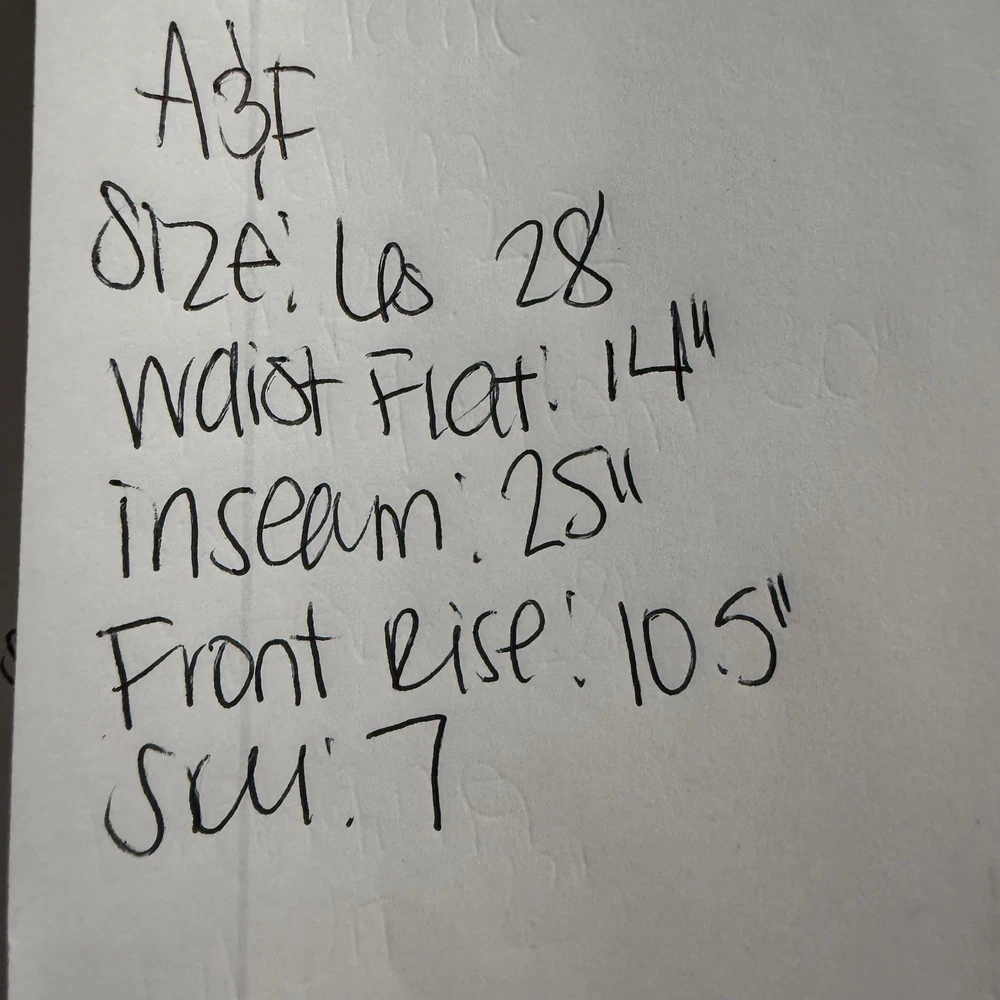 A&F
Size: 6s 28
Waist Flat: 14"
inseam: 25"
Front Rise: 10.5"
SKU: 7